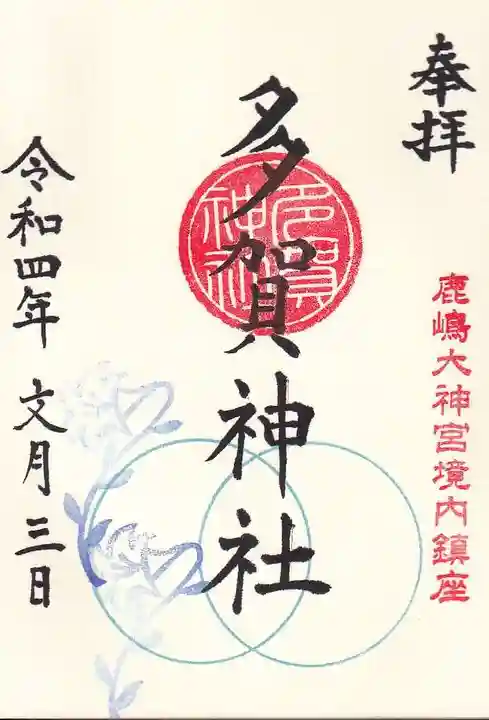 奉拝
鹿嶋大神宮境内鎮座
多賀神社
多賀神社
令和四年文月三日